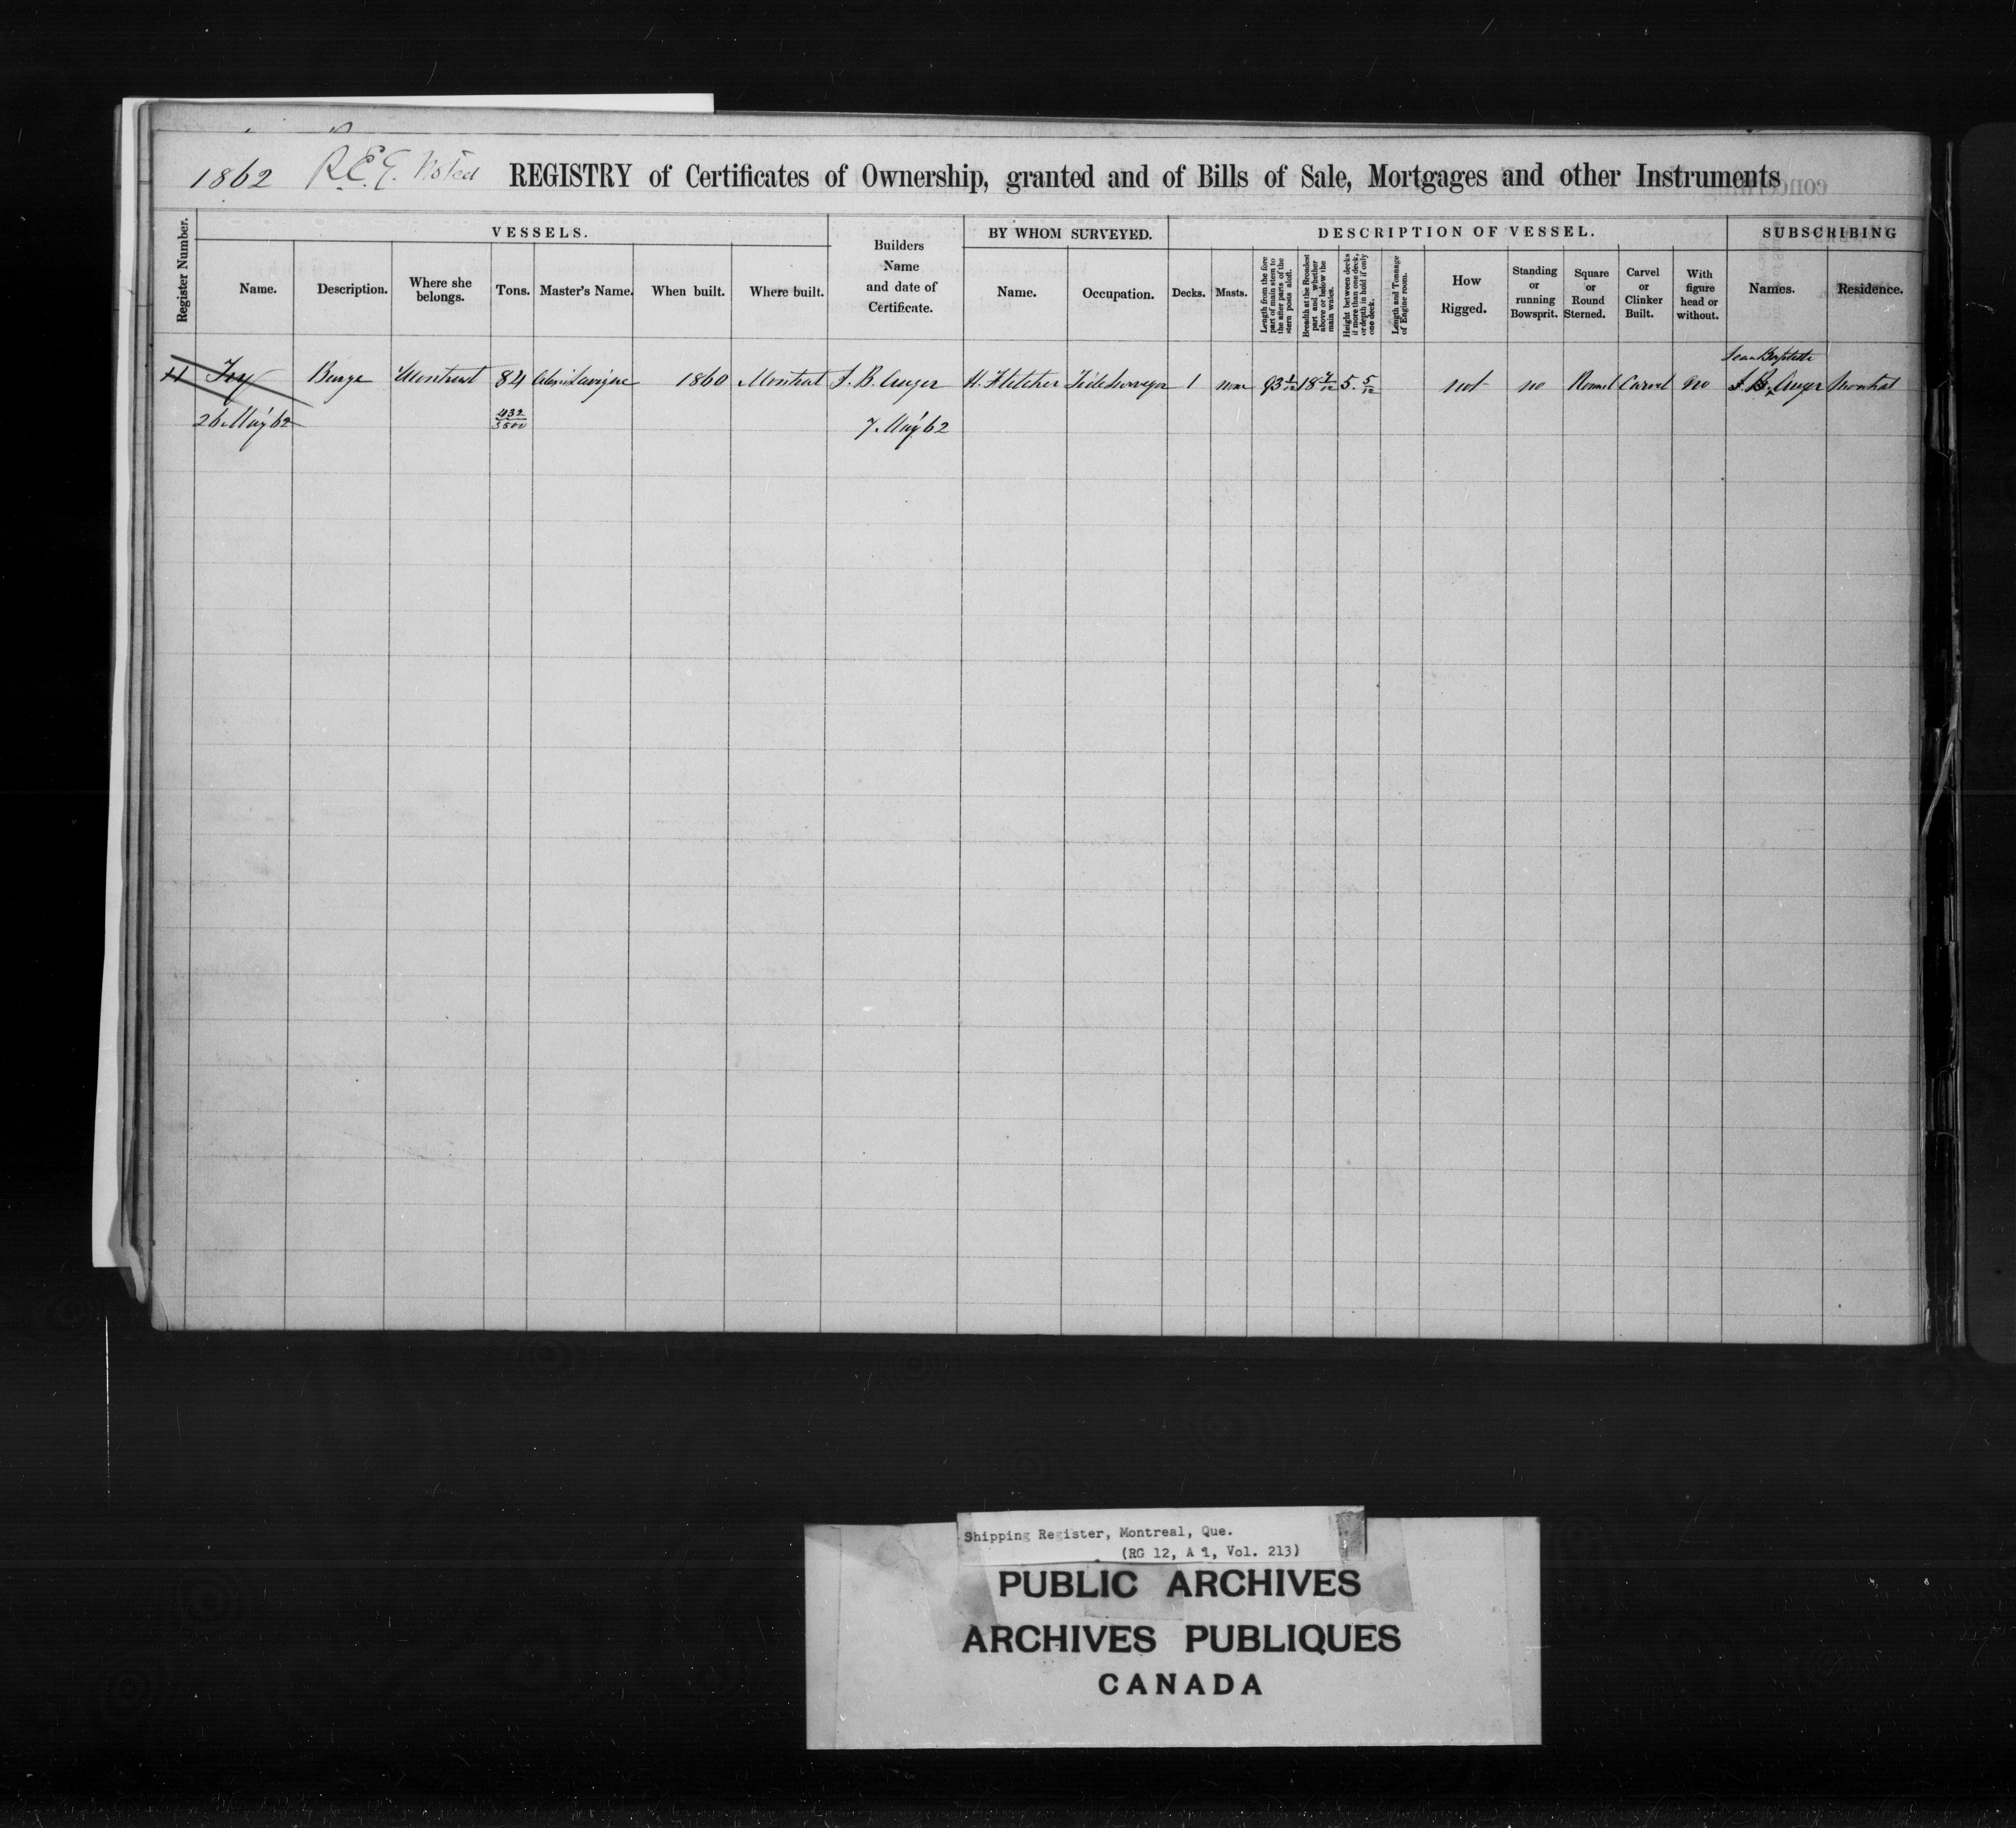 1862 R.E.G. Noted REGISTRY of Certificates of Ownership, granted and of Bills of Sale, Mortgages and other Instruments
Register Number.
VESSELS.
Name.
Description.
Where she
belongs.
Tons.
Master's Name.
When built.
Where built.
Builders
Name
and date of
Certificate.
BY WHOM SURVEYED.
Name.
Occupation.
DESCRIPTION OF VESSEL.
Decks.
Masts.
Length from the fore
part of main stem to
the after parts of the
stern poss aloft.
Breadth at the Broadest
part and whether
above or below the
main wales.
Height between decks
if more than one deck,
or depth in hold if only
one deck.
Length and Tonnage
of Engine room.
How
Rigged.
Standing
or
running
Bowsprit.
Square
or
Round
Sterned.
Carvel
or
Clinker
Built.
With
figure
head or
without.
SUBSCRIBING
Names.
Residence.
Jean Baptiste
11 Barge Montreal 84 Lavigne 1860 Montreal J. B. Auger H. Fletcher Tide Surveyor 1 none 93 1/12 18 7/12 5. 5/12 not no Round Carvel no J. B. Auger Montreal
26 May 62 432/3500 7 May 62
Shipping Register, Montreal, Que.
(RG 12, A 1, Vol. 213)
PUBLIC ARCHIVES
ARCHIVES PUBLIQUES
CANADA